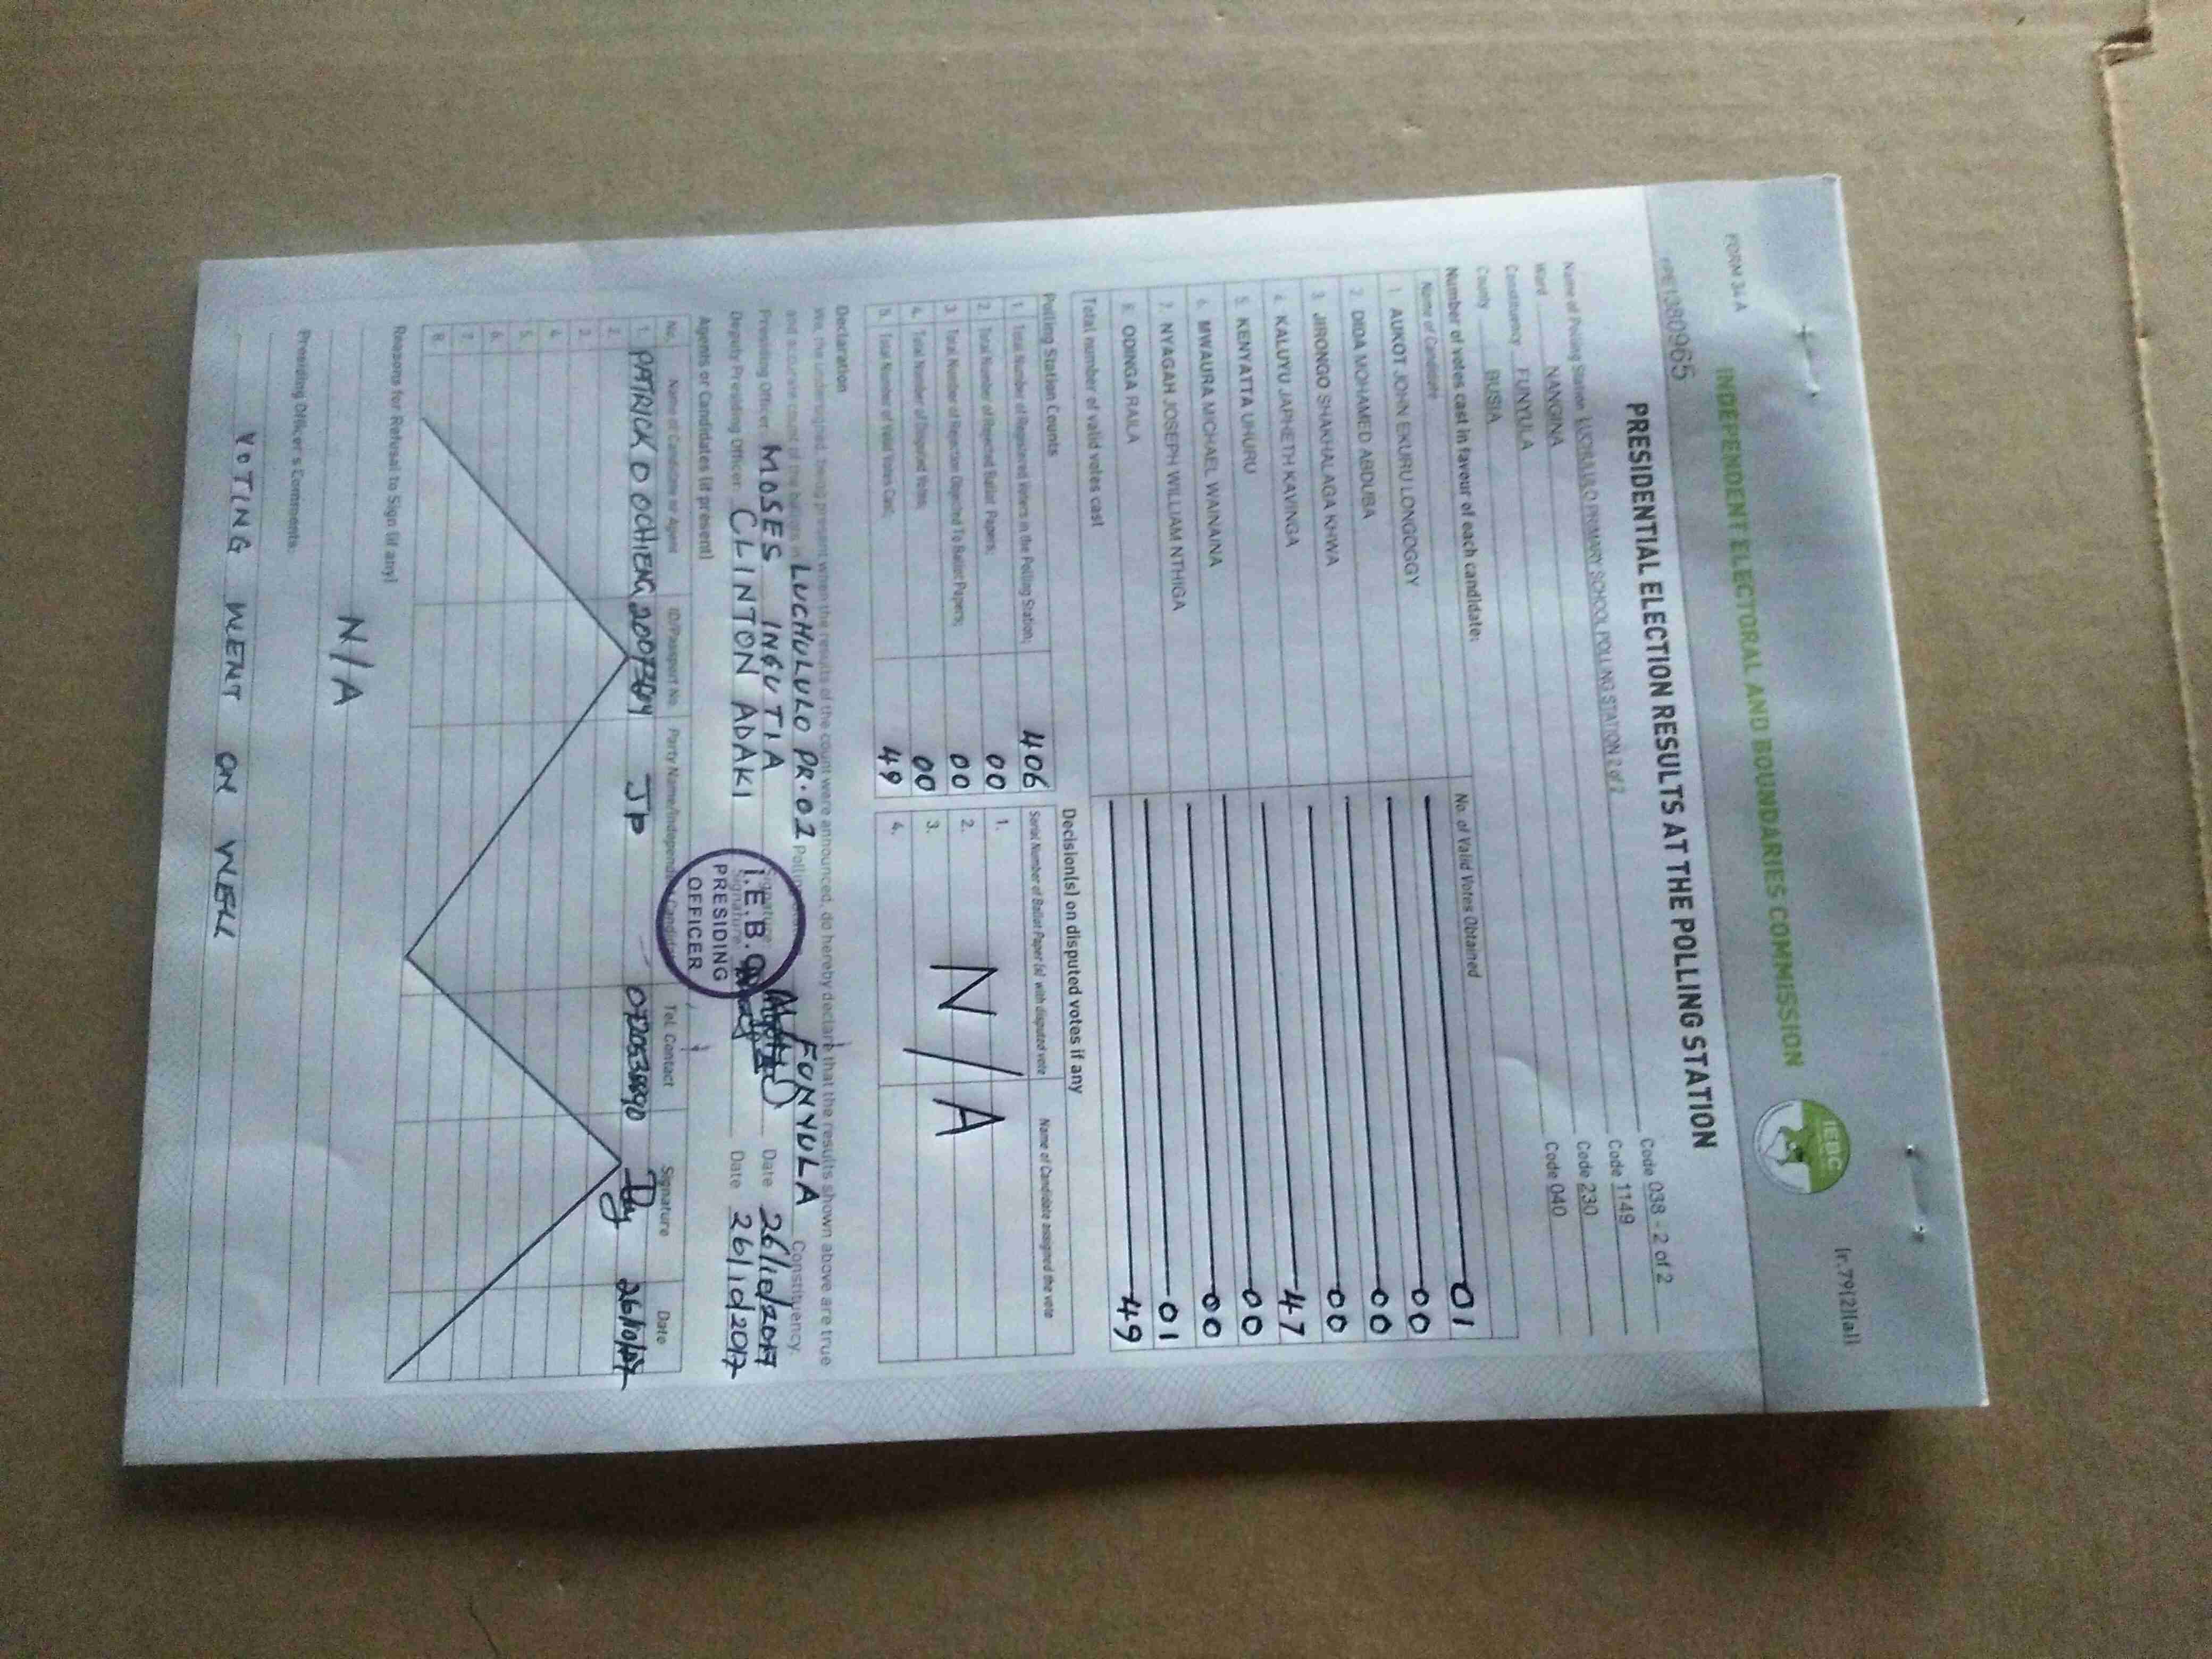 FORM 34 A
(r.79(2)(a))
INDEPENDENT ELECTORAL AND BOUNDARIES COMMISSION
IEBC
PRESIDENTIAL ELECTION RESULTS AT THE POLLING STATION
Name of Polling Station LUCHULULO PRIMARY SCHOOL POLLING STATION 2 of 2 Code 038 - 2 of 2
Ward NANGINA Code 1149
Constituency FUNYULA Code 230
County BUSIA Code 040
Number of votes cast in favour of each candidate:
Name of Candidate No. of Valid Votes Obtained
1. AUKOT JOHN EKURU LONGOGGY 01
2. DIDA MOHAMED ABDUBA 00
3. JIRONGO SHAKHALAGA KHWA 00
4. KALUYU JAPHETH KAVINGA 00
5. KENYATTA UHURU 47
6. MWAURA MICHAEL WAINAINA 00
7. NYAGAH JOSEPH WILLIAM NTHIGA 00
8. ODINGA RAILA 01
Total number of valid votes cast 49
Polling Station Counts
1. Total Number of Registered Voters in the Polling Station; 406
2. Total Number of Rejected Ballot Papers; 00
3. Total Number of Rejection Objected To Ballot Papers; 00
4. Total Number of Disputed Votes; 00
5. Total Number of Valid Votes Cast; 49
Decision(s) on disputed votes if any
Serial Number of Ballot Paper (s) with disputed vote Name of Candidate assigned the vote
1.
2.
3.
4.
N/A
Declaration
We, the undersigned, being present when the results of the count were announced, do hereby declare that the results shown above are true
and accurate count of the ballots in LUCHULULO PR. 02 Polling FUNYULA Constituency.
Presiding Officer: MOSES INGUTIA Signature Date 26/10/2017
Deputy Presiding Officer: CLINTON ADAKI Signature Date 26/10/2017
I.E.B.C
PRESIDING
OFFICER
Agents or Candidates (if present)
No. Name of Candidate or Agent ID/Passport No. Party Name/Independent Candidate Tel. Contact Signature Date
1. PATRICK O OCHIENG JP
2.
3.
4.
5.
6.
7.
8.
Reasons for Refusal to Sign (if any)
N/A
Presiding Officer's Comments:
VOTING WENT ON WELL